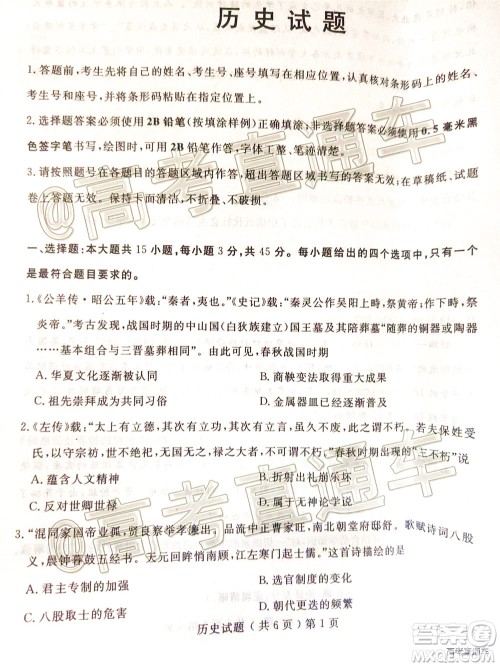 历史试题
1.答题前，考生先将自己的姓名、考生号、座号填写在相应位置，认真核对条形码上的姓名、
考生号和座号，并将条形码粘贴在指定位置上。
2.选择题答案必须使用2B铅笔（按填涂样例）正确填涂；非选择题答案必须使用0.5毫米黑
色签字笔书写，绘图时，可用2B铅笔作答，字体工整、笔迹清楚。
3.请按照题号在各题目的答题区域内作答，超出答题区域书写的答案无效；在草稿纸、试题
卷上答题无效。保持卡面清洁，不折叠、不破损。
一、选择题：本大题共15小题，每小题3分，共45分。每小题给出的四个选项中，只有一个
是最符合题目要求的。
1.《公羊传·昭公五年》载：“秦者，夷也。”《史记》载：“秦灵公作吴阳上畤，祭黄帝；作下畤，祭
炎帝。”考古发现，战国时期的中山国（白狄族建立）国王墓葬“随葬的铜器或陶器
……基本组合与三晋墓葬相同”。由此可见，春秋战国时期
A.华夏文化逐渐被认同
B.商鞅变法取得重大成果
C.祖先崇拜成为共同习俗
D.金属器皿已经逐渐普及
2.《左传》载：“太上有立德，其次有立功，其次有立言，虽久不废，此之谓不朽。若夫保姓受
氏，以守宗祊，世不绝祀，无国无之，禄之大者，不可谓不朽。”春秋时期出现的“三不朽”说
A.蕴含人文精神
B.折射出阶层流动
C.反对世卿世禄
D.属于无神论学说
3.“混同家国帝业孤，贤良察举孝廉出。品流中正膏粱右，南北朝堂府邸舒。歌赋诗词八股
义，晨钟暮鼓五更书。天元回眸悄南顾，江左寒门起士儒。”这首诗描绘的是
A.君主专制的加强
B.选官制度的演变
C.八股取士的危害
D.朝代更迭的频繁
历史试题（共6页）第1页
@高考直通车
@高考直通车